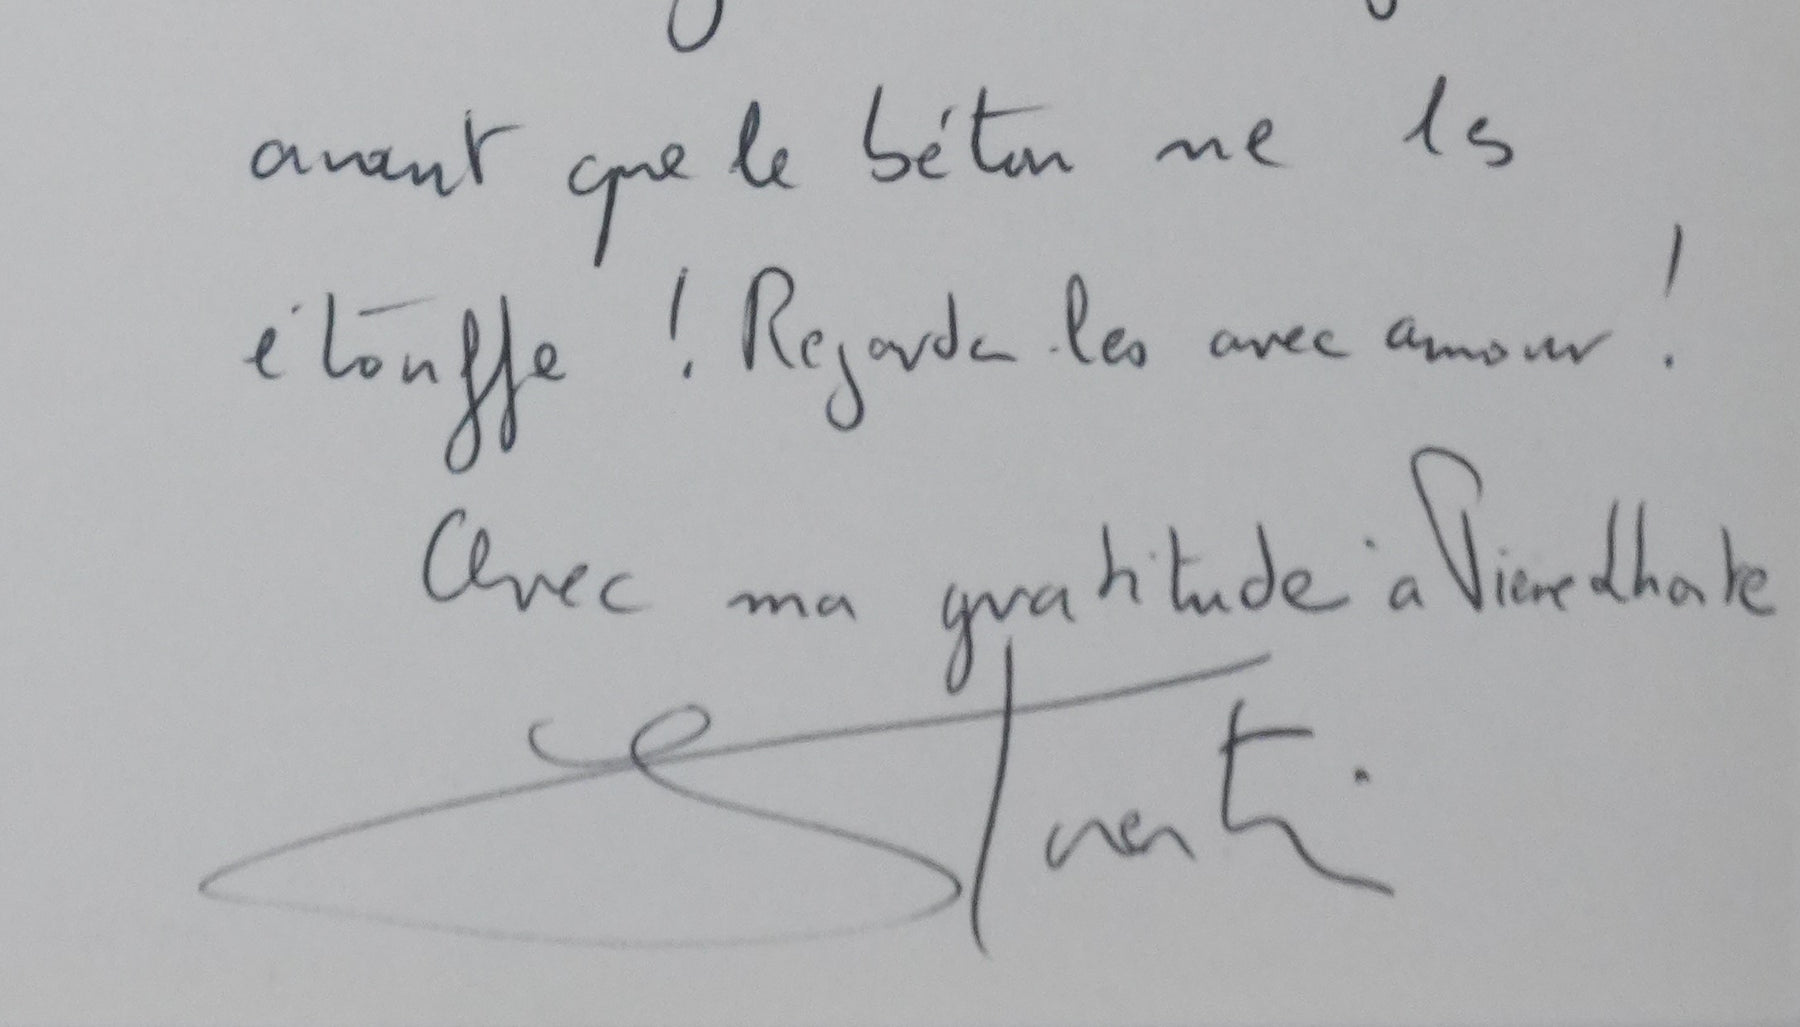 avant que le béton ne ls
étouffe ! Regarde les avec amour !
Avec ma gratitude à Pierredhate